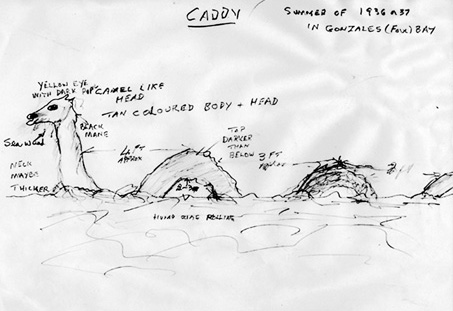 CADDY
SUMMER OF 1936 OR 37
IN GONZALES (FOUL) BAY
YELLOW EYE
WITH DARK PUP
CAMEL LIKE
HEAD
TAN COLOURED BODY + HEAD
BLACK
MANE
SEAWEED
NECK
MAYBE
THICKER
4 FT
APPROX
TOP
DARKER
THAN
BELOW
3 FT
HUMP
ROLLING